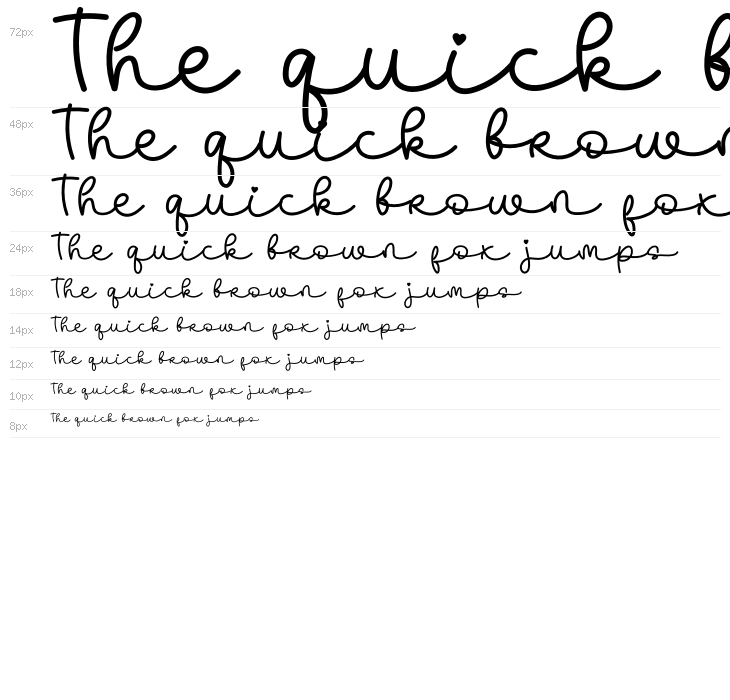 72px The quick b
48px The quick brown
36px The quick brown fox
24px The quick brown fox jumps
18px The quick brown fox jumps
14px The quick brown fox jumps
12px The quick brown fox jumps
10px The quick brown fox jumps
8px The quick brown fox jumps